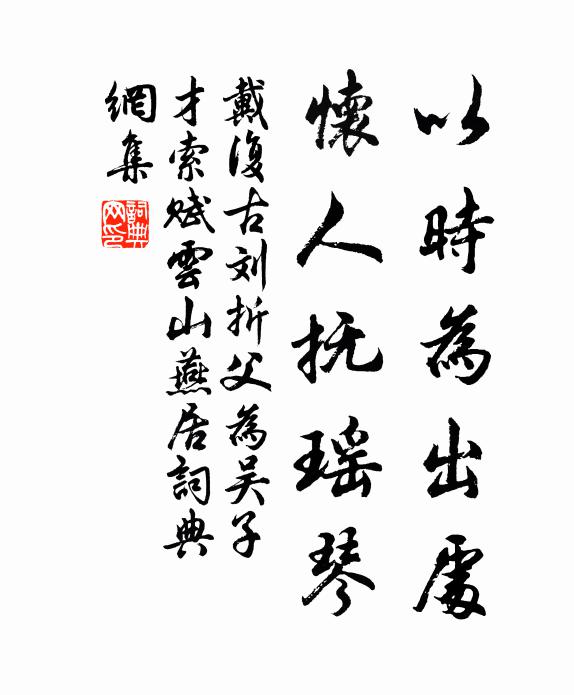 以時為出處
懷人抚瑶琴
戴復古刘折父為吴子
才索赋雲山燕居詞典
網集
詞典
网印